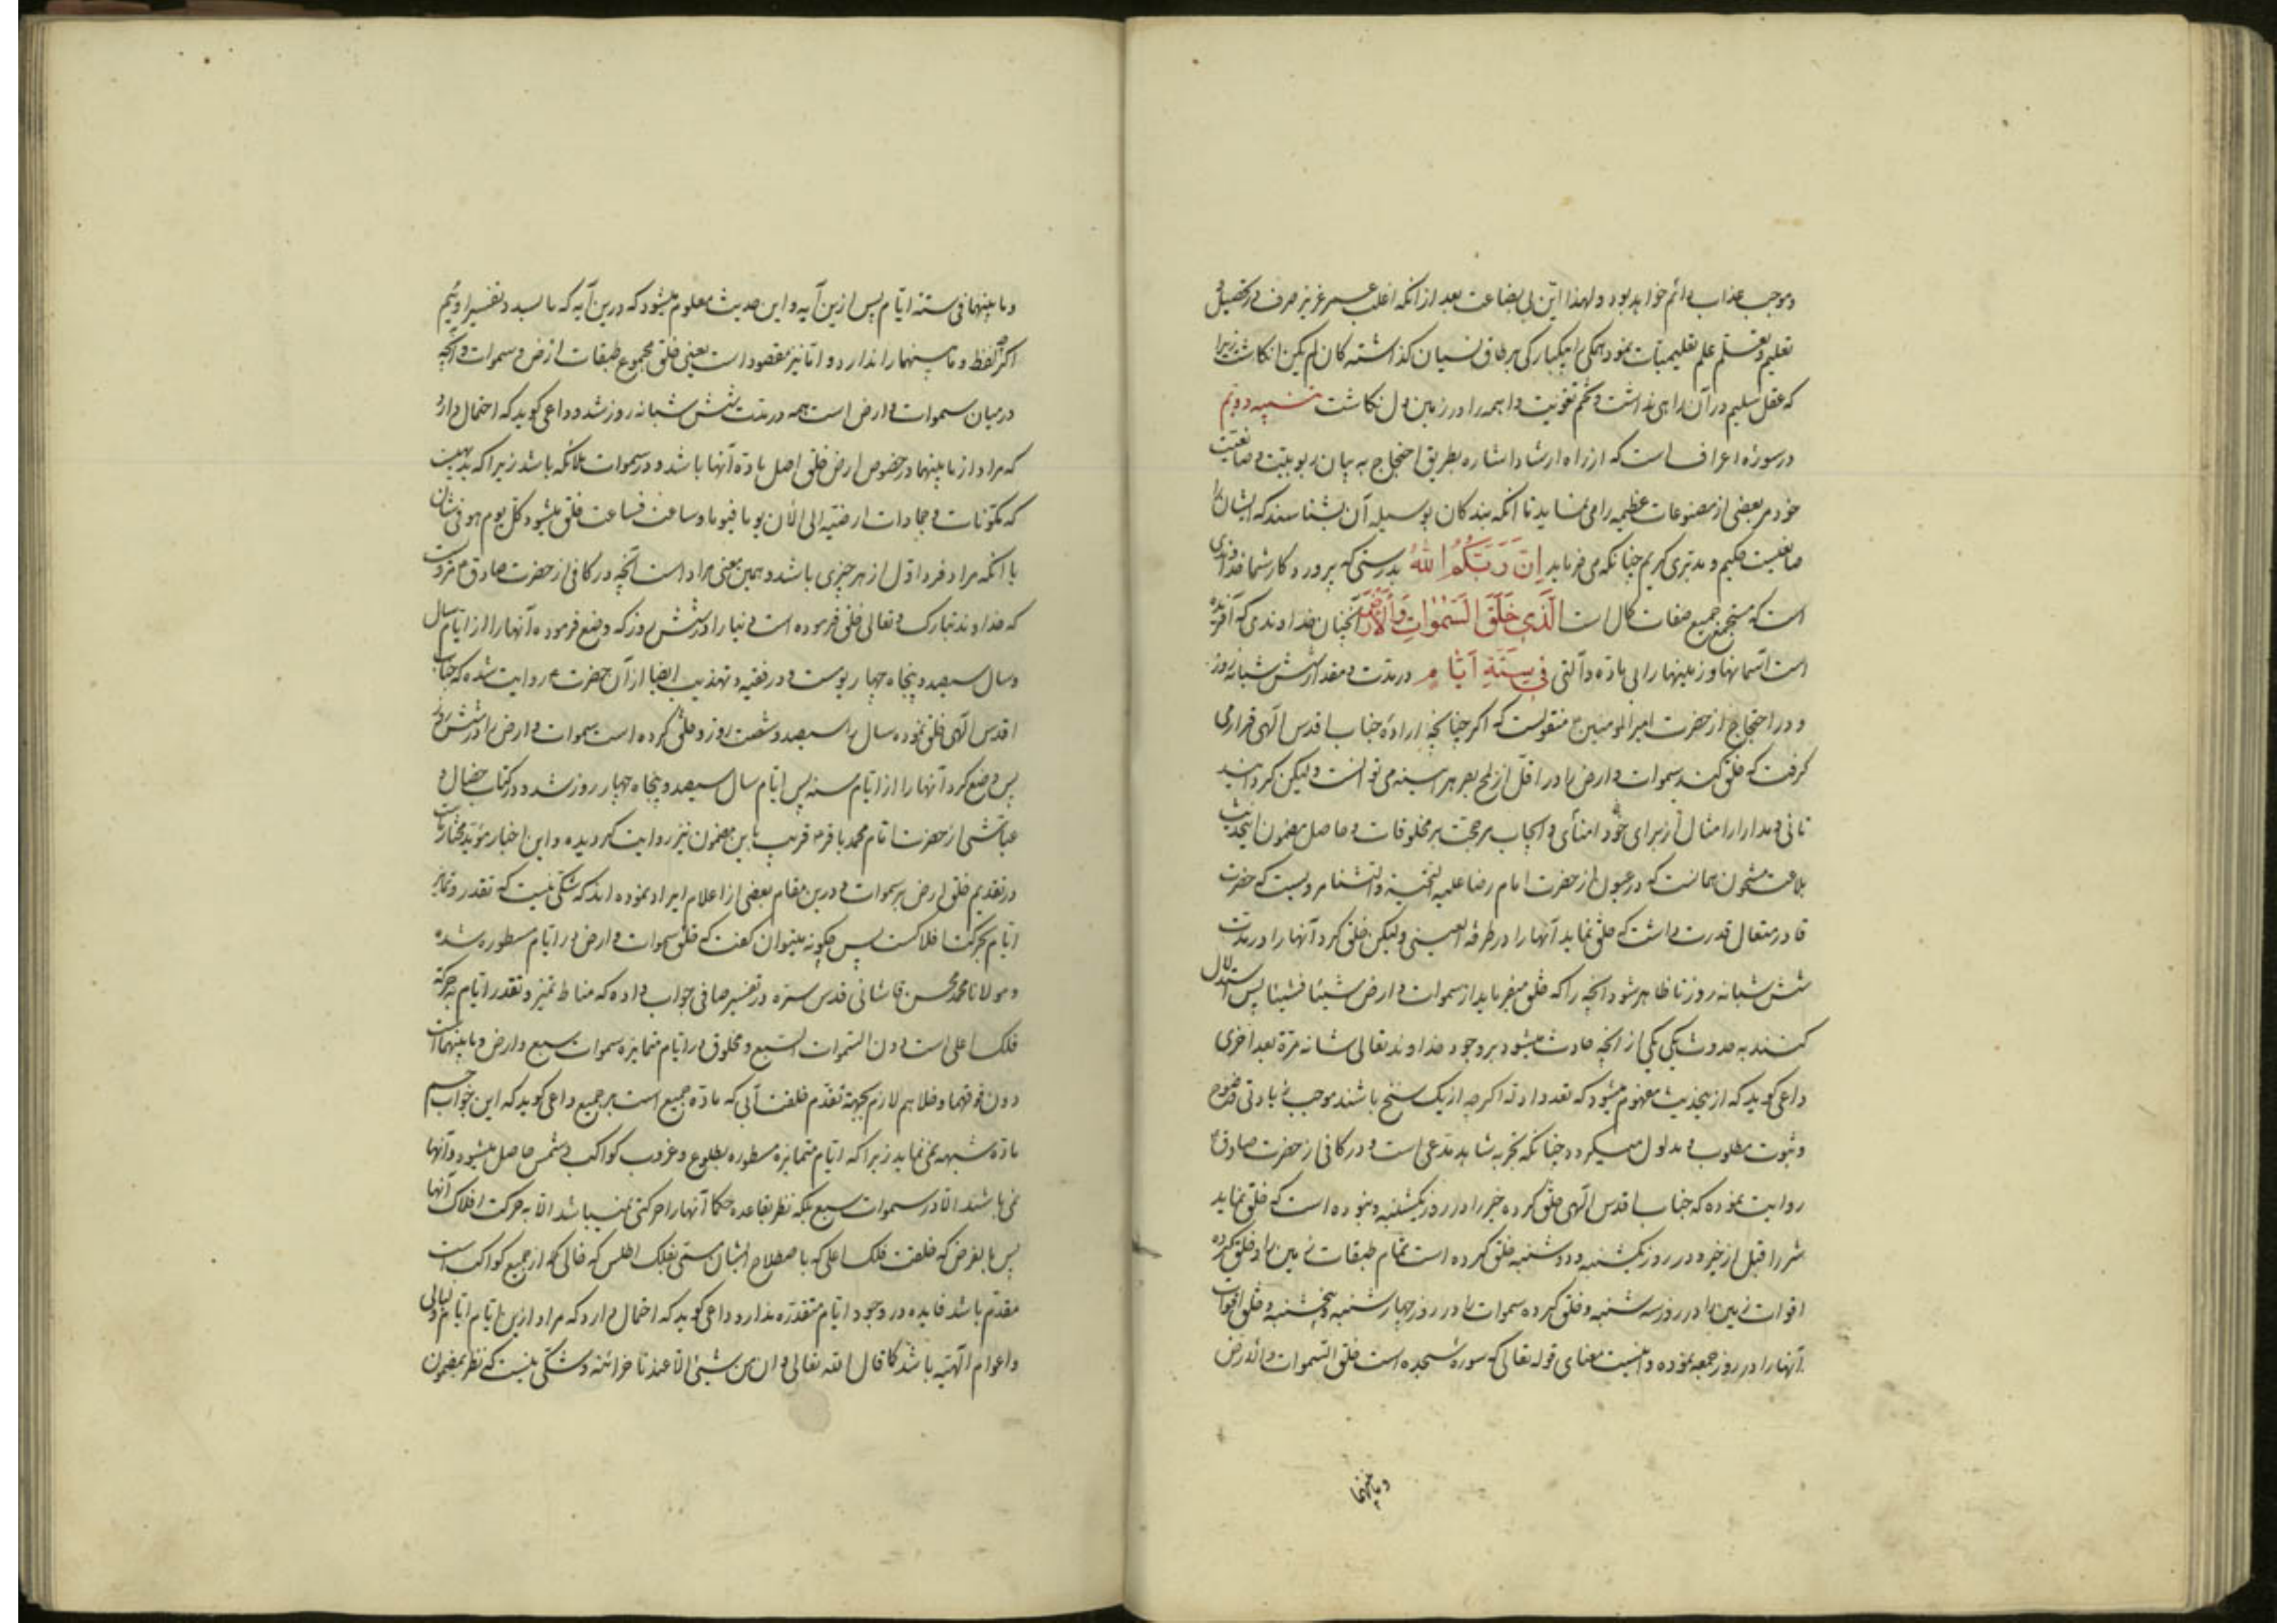 وموجب عذاب دائم خواهد بود ولهذا این بی بضاعت بعد از آنکه اغلب عمر عزیز صرف در تحصیل و
تعلیم وتعلّم علم تعلیمیات نموده همکی را بیکبارکی بر طاق نسیان کذاشته کان لم یکن انکاشت زیرا
که عقل سلیم در آن راهی نداشت و تخم تقویت واهمه را در زمین دل نکاشت تنبیه دویّم
در سوره اعراف است که از راه ارشاد اشاره بطریق احتجاج به بیان ربوبیّت و صانعیّت
خود مر بعضی از مصنوعات عظیمه را می نماید تا آنکه بندکان بوسیله آن بشناسند که ایشان را
صانعیست حکیم و مدبّری کریم چنانکه می فرماید اِنَّ رَبَّکُمُ اللّٰهُ بدرستی که پروردکار شما خداوندی
است که مستجمع جمیع صفات کمال است الَّذی خَلَقَ السَّمٰوٰاتِ وَالْاَرْضَ آنچنان خداوندی که آفریده
است آسمانها و زمینها را بی ماده و آلتی فی سِتَّةِ اَیّٰامٍ در مدّت و مقدار شش شبانه روز
و در احتجاج از حضرت امیرالمومنین ع منقولست که اکر چنانچه اراده جناب اقدس الهی قرار می
کرفت که خلق کند سموات و ارض را در اقلّ از لمح بصر هر آینه می توانست ولیکن کردانید
تانی و مدارا را امثال از برای خود امنأی و ایجاب مر حجّت بر مخلوقات و حاصل مضمون این حدیث
بلاغت مشحون همانست که در عیون از حضرت امام رضا علیه التحیة والثنا مرویست که حضرت
قادر متعال قدرت داشت که خلق نماید آنها را در طرفة العینی ولیکن خلق کرد آنها را در مدّت
شش شبانه روز تا ظاهر شود آنچه را که خلق میفرماید از سموات و ارض شیئا فشیئا پس استدلال
کنند به حدوث یکی یکی از آنچه حادث میشود بر وجود خداوند تعالی شانه مرّة بعد اخری
داعی کوید که از این حدیث مفهوم میشود که تعدد ادله اکرچه از یک سنخ باشند موجب زیادتی وضوح
و ثبوت مطلوب و مدلول میکردد چنانکه تجربه شاهد مدّعی است و در کافی از حضرت صادق ع
روایت نموده که جناب اقدس الهی خلق کرده خیر را در روز یکشنبه و نبوده است که خلق نماید
شر را قبل از خیر و در روز یکشنبه و دوشنبه خلق کرده است تمام طبقات زمین را و خلق کرده
اقوات زمین را در روز سه شنبه و خلق کرده سموات را در روز چهارشنبه و پنجشنبه و خلق اقوات
آنها را در روز جمعه نموده و اینست معنای قوله تعالی که سوره سجده است خلق السّموات والارض
وما بینهما
وما بینهما فی ستة ایّام پس ازین آیه و این حدیث معلوم میشود که درین آیه که ما بصدد تفسیر اوئیم
اکرچه لفظ وما بینهما را ندارد و امّا نیز مقصود است یعنی خلق مجموع طبقات ارض و سموات و آنچه
در میان سموات و ارض است همه در مدّت شش شبانه روز شد و داعی کوید که احتمال دارد
که مراد از ما بینهما در خصوص ارض خلق اصل مادّه آنها باشد و در سموات ملائکه باشد زیرا که بدیهیست
که مکوّنات و جمادات ارضیّه الی الآن یوما فیوما و ساعت فساعت خلق میشود کلّ یوم هو فی شان
یا آنکه مراد فرد اوّل از هر چیزی باشد و همین معنی مراد است آنچه در کافی از حضرت صادق ع مرویست
که خداوند تبارک و تعالی خلق فرموده است دنیا را در شش روز که وضع فرموده آنها را از ایّام سال
و سال سیصد و پنجاه چهار یوست و در فقیه و تهذیب ایضا از آن حضرت ع روایت شده که جناب
اقدس الهی خلق نموده سال را سیصد و شصت روز و خلق کرده است سموات و ارض را در شش روز
پس وضع کرد آنها را از ایّام سنه پس ایّام سال سیصد و پنجاه چهار روز شد و در کتاب خصال و
عیاشی از حضرت امام محمد باقر ع قریب باین مضمون نیز روایت کردیده و این اخبار مؤیّد مختار ماست
در تقدیم خلق ارض بر سموات و درین مقام بعضی از اعلام ایراد نموده اند که شکی نیست که تقدر و تمایز
ایّام بحرکت افلاکست پس چکونه میتوان کفت که خلق سموات و ارض در ایّام مسطوره شده
و مولانا محمد محسن قاشانی قدس سرّه در تفسیر صافی جواب داده که مناط تمیز و تقدر ایّام به حرکة
فلک اعلی است دون السّموات السّبع و مخلوق در ایّام متمایزه سموات سبع وارض وما بینهماست
دون فوقهما و فلا هم لازم بجهة تقدّم خلقت آبی که مادّه جمیع است بر جمیع داعی کوید که این جواب حسم
مادّه شبهه نمی نماید زیرا که ایّام متمایزه مسطوره بطلوع و غروب کواکب و شمس حاصل میشود و آنها
نمی باشند الّا در سموات سبع بلکه نظر بقاعده حکما آنها را حرکتی نمیباشد الّا به حرکت افلاک آنها
پس بالفرض که خلقت فلک اعلی که باصطلاح ایشان مسمّی بفلک اطلس که خالی که از جمیع کواکب است
مقدّم باشد فایده در وجود ایّام متقدّره ندارد و داعی کوید که احتمال دارد که مراد ازین ایّام ایّام و لیالی
و اعوام الهیّه باشد کما قال الله تعالی وان من شیئ الّا عندنا خزائنه و شکی نیست که نظر بمضمون